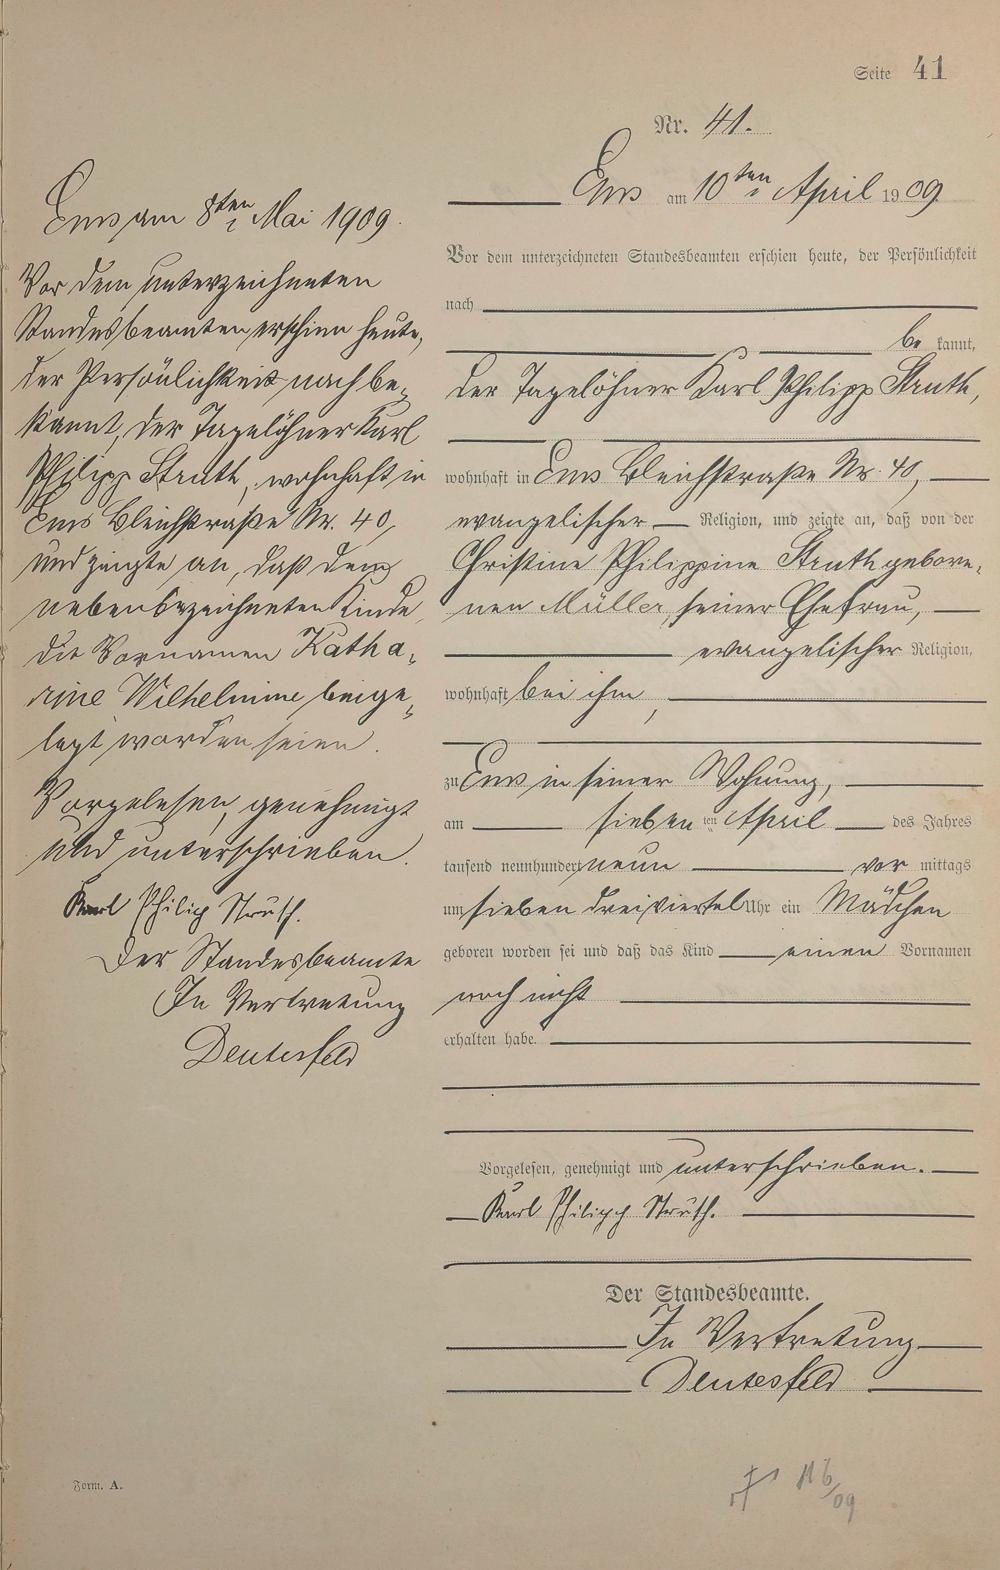 Seite 41
Nr. 41.
Ems am 10ten April 1909.
Vor dem unterzeichneten Standesbeamten erschien heute, der Persönlichkeit
nach
be kannt,
der Tagelöhner Karl Philipp Struth,
wohnhaft in Ems Bleichstraße Nr. 40,
evangelischer Religion, und zeigte an, daß von der
Christine Philippine Struth gebore-
nen Müller, seiner Ehefrau,
evangelischer Religion,
wohnhaft bei ihm,
zu Ems in seiner Wohnung,
am sieben ten April des Jahres
tausend neunhundert neun vor mittags
um sieben dreiviertel Uhr ein Mädchen
geboren worden sei und daß das Kind einen Vornamen
noch nicht
erhalten habe.
Vorgelesen, genehmigt und unterschrieben.
Karl Philipp Struth.
Der Standesbeamte.
In Vertretung
Ems am 8ten Mai 1909.
Vor dem unterzeichneten
Standesbeamten erschien heute,
der Persönlichkeit nach be-
kannt, der Tagelöhner Karl
Philipp Struth, wohnhaft in
Ems Bleichstraße Nr. 40,
und zeigte an, daß dem
nebenbezeichneten Kinde
die Vornamen Katha-
rine Wilhelmine beige-
legt worden seien.
Vorgelesen, genehmigt
und unterschrieben.
Karl Philipp Struth.
Der Standesbeamte
In Vertretung
Form. A.